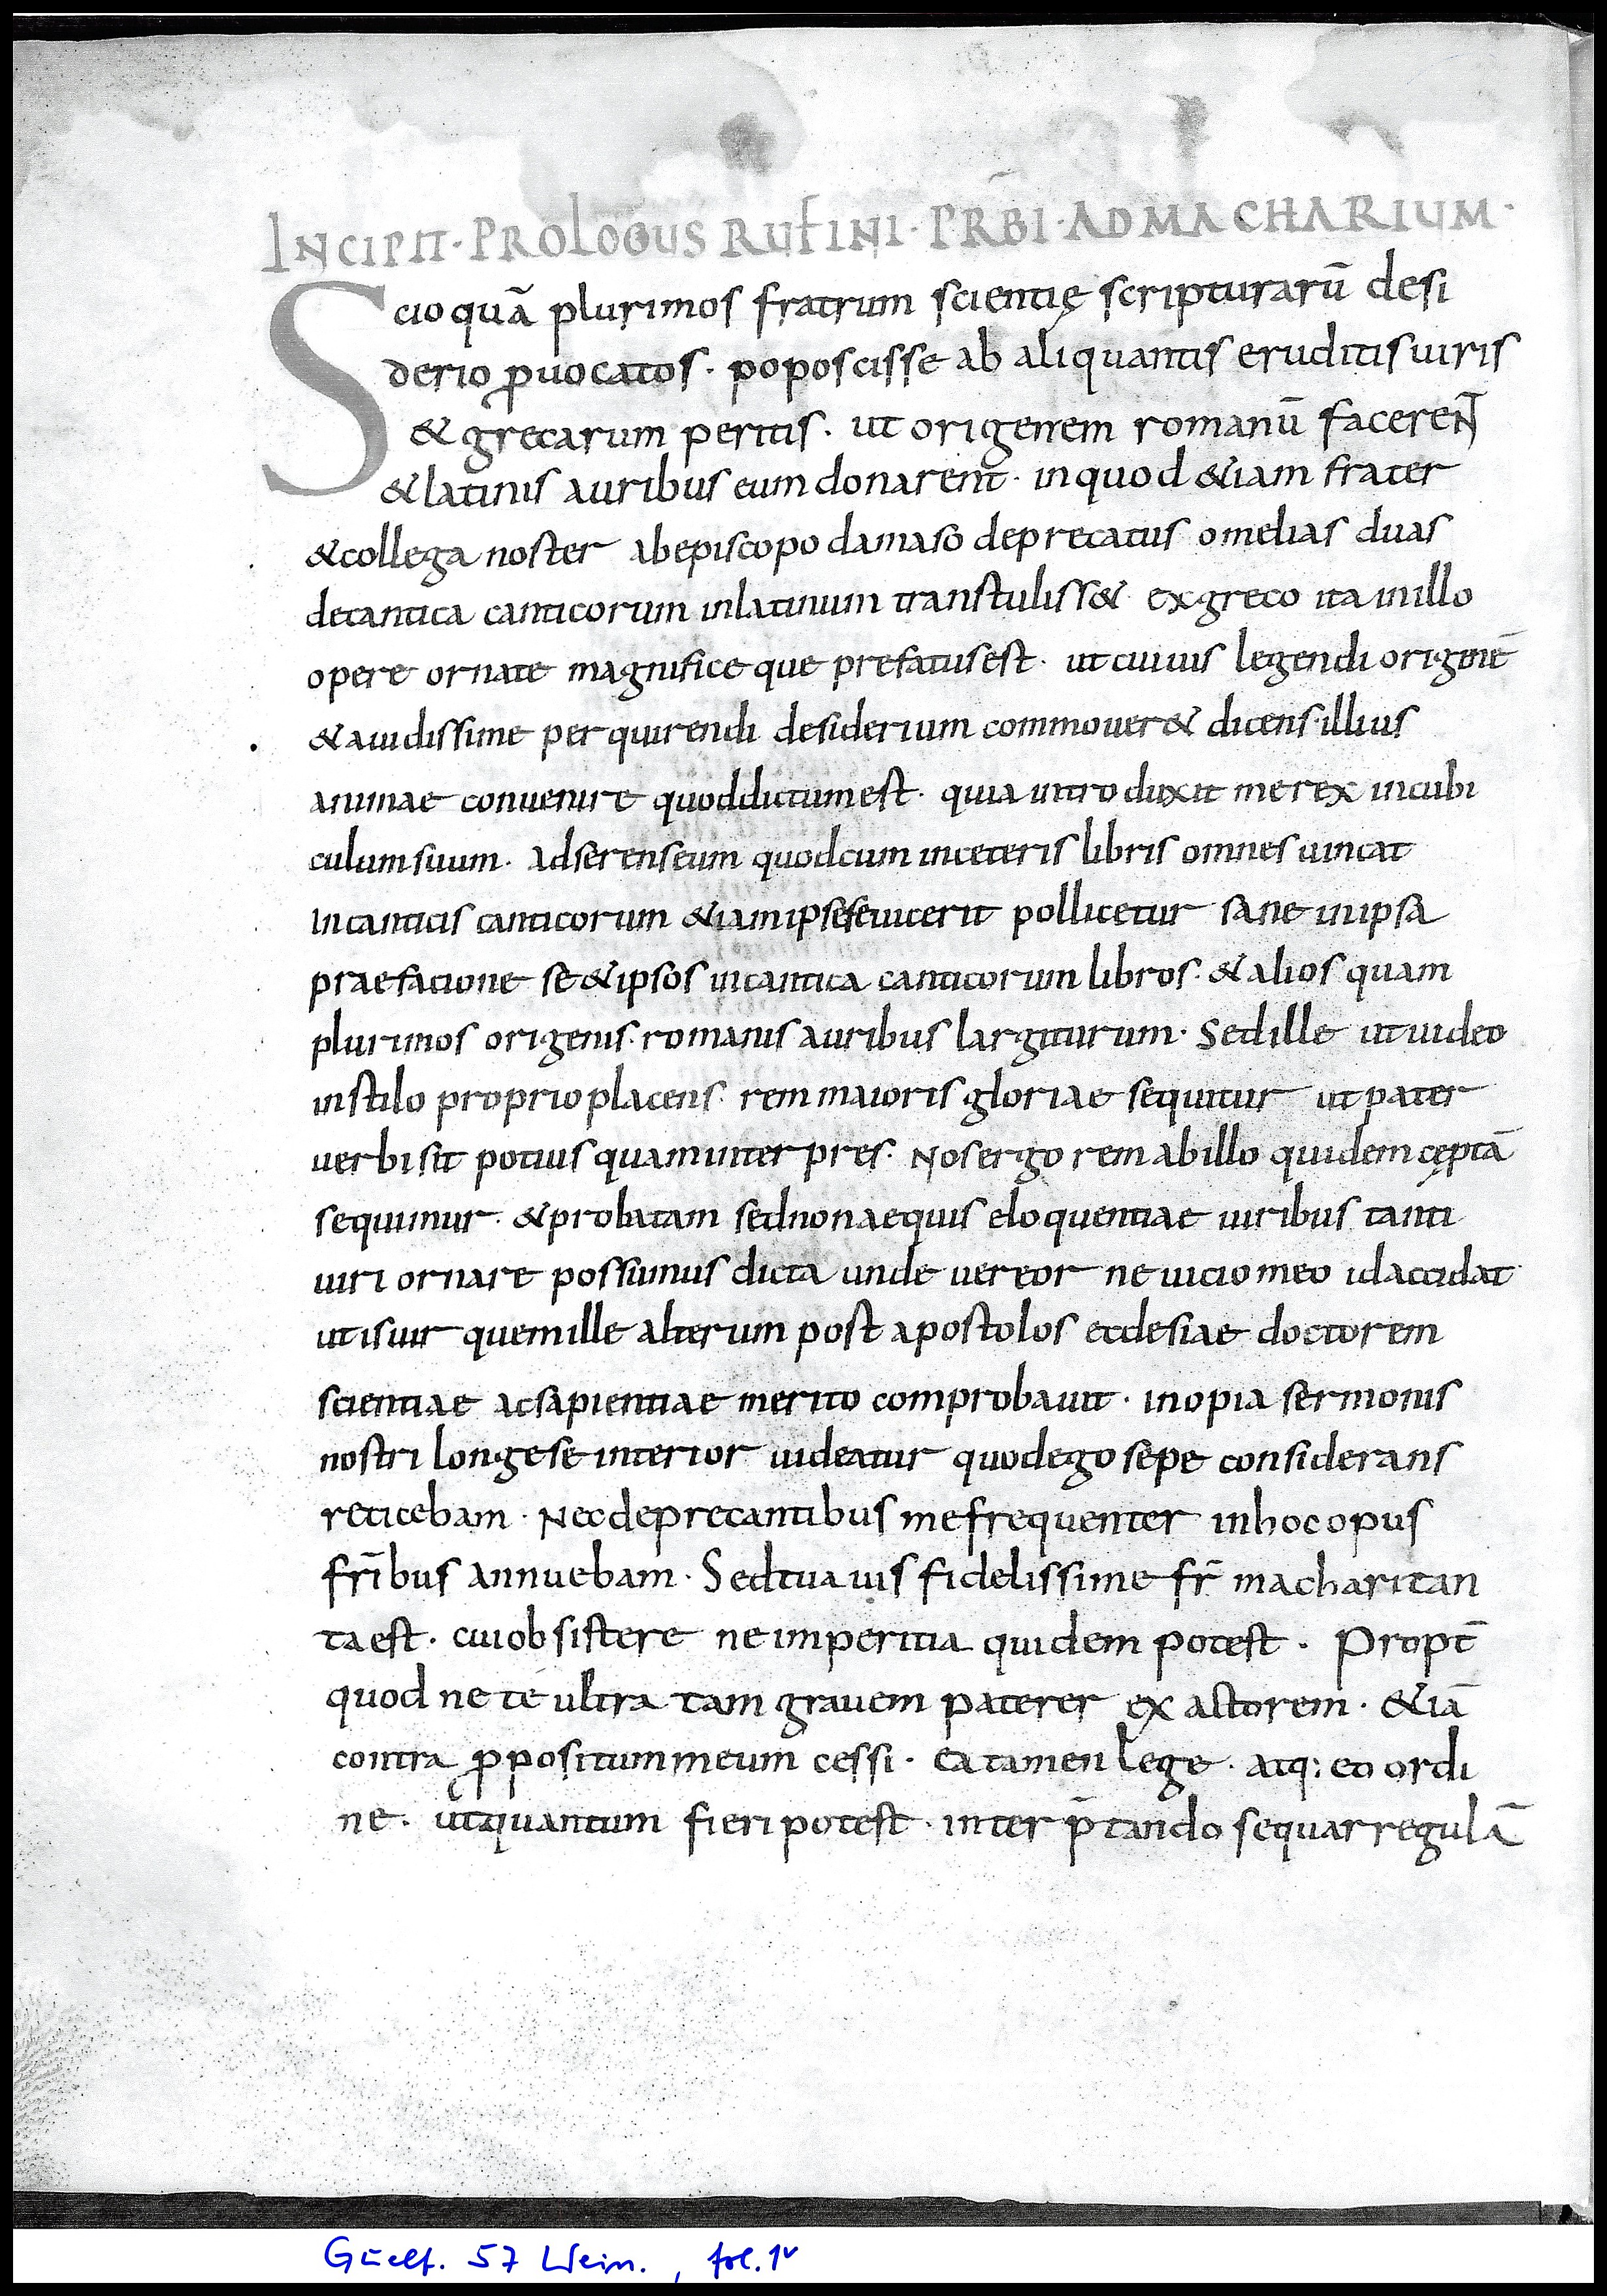 INCIPIT · PROLOGUS RUFINI · PR̄BI · AD MACHARIUM ·
Scio quā plurimos fratrum scientię scripturarū desi
derio ꝓuocatos · poposcisse ab aliquantis eruditis uiris
& grecarum peritis · ut origenem romanū facereN̄
& latinis auribus eum donarent · in quod &iam frater
& collega noster ab episcopo damaso deprecatus omelias duas
de cantica canticorum in latinum transtuliss& ex greco ita in illo
opere ornate magnifice que prefatus est · ut cuiuis legendi originē
& auidissime perquirendi desiderium commouer& dicens · illius
animae conuenire quod dictum est · quia introduxit me rex in cubi
culum suum · adserens eum quod cum in ceteris libris omnes uincat
in canticis canticorum &iam ipse se uicerit pollicetur sane in ipsa
praefacione se & ipsos in cantica canticorum libros · & alios quam
plurimos origenis · romanis auribus largiturum · Sed ille ut uideo
in stilo proprio placens · rem maioris gloriae sequitur ut pater
uerbi sit potius quam interpres · Nos ergo rem ab illo quidem cęptā
sequimur · & probatam sed non aequis eloquentiae uiribus tanti
uiri ornare possumus dicta unde uereor ne uicio meo id accidat ·
ut is uir quem ille alterum post apostolos ecclesiae doctorem
scientiae ac sapientiae merito comprobauit · inopia sermonis
nostri longe se interior uideatur quod ego sepe considerans
reticebam · Nec deprecantibus me frequenter in hoc opus
fr̄ibus annuebam · Sed tua uis fidelissime fr̄ machari tan
ta est · cui obsistere ne imperitia quidem potest · Propt̄
quod ne té ultra tam grauem paterer exactorem · &iā
contra ꝓpositum meum cessi · ea tamen lege · atq; eo ordi
ne · ut quantum fieri potest · interp̄tando sequar regulā
Guelf. 57 Weiss., fol. 1v